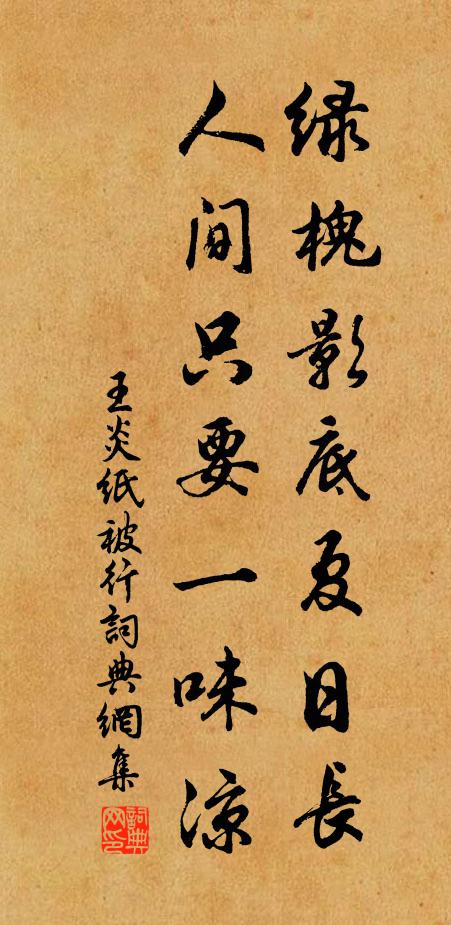 绿槐影底夏日长
人间只要一味凉
王炎纸被行詞典網集
詞典网印